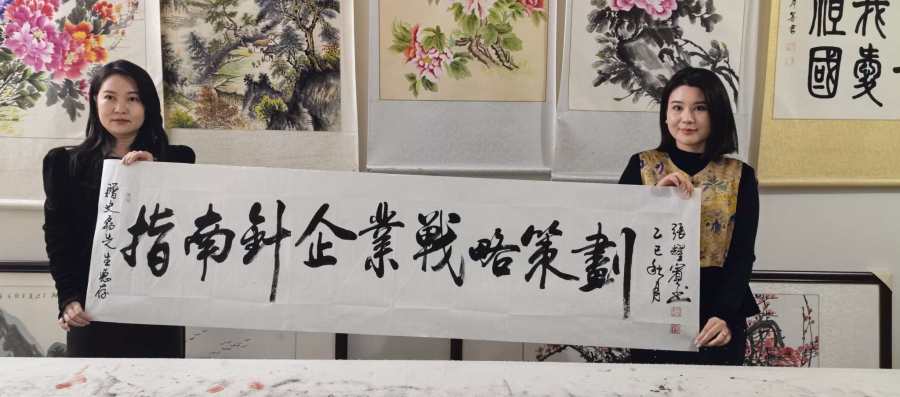 贈史先生惠存
指南針企業戰略策劃
張書
乙巳秋月
我愛
祖國